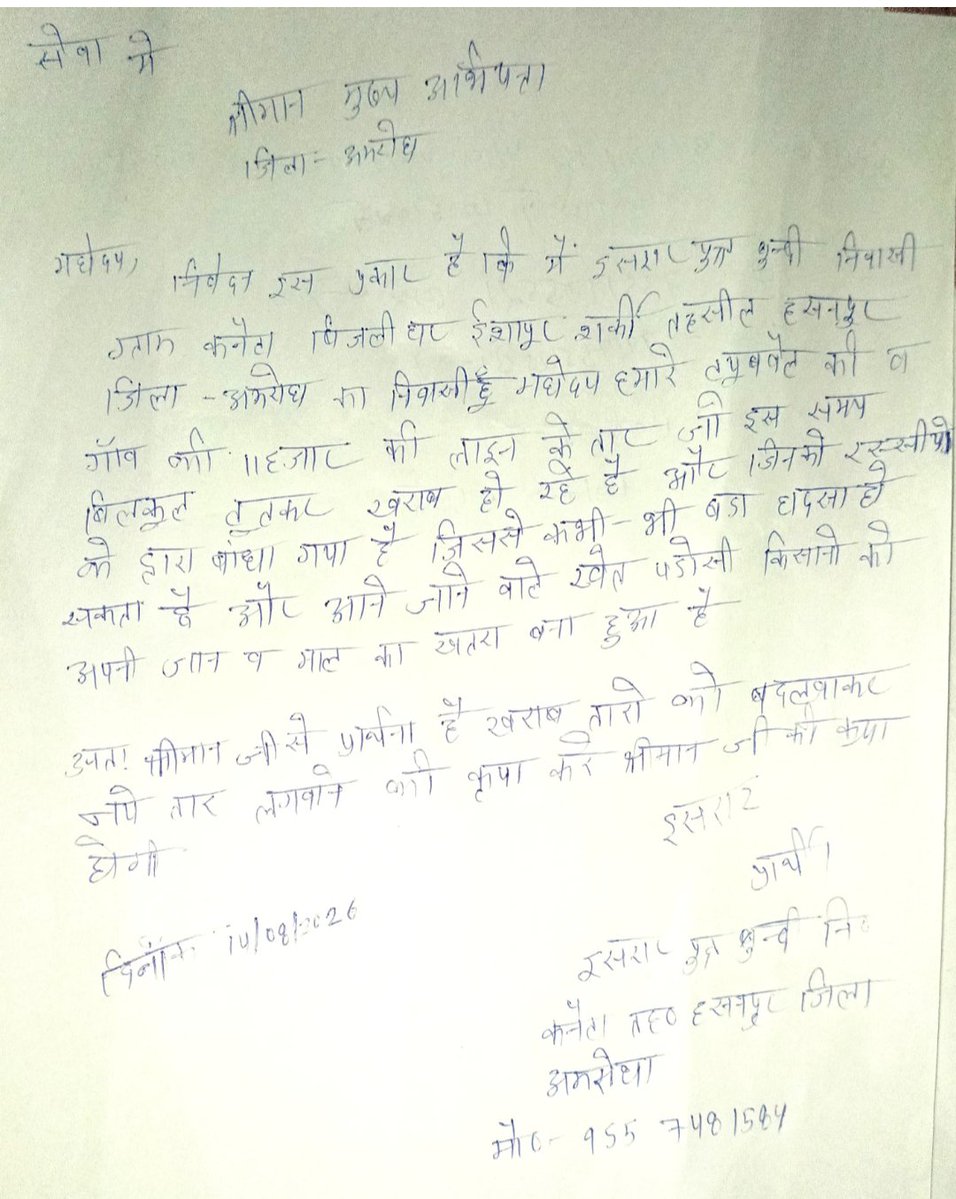 सेवा मे
श्रीमान मुख्य अभियन्ता
जिला- अमरोहा
महोदय,
निवेदन इस प्रकार है कि मैं इसरार पुत्र मुन्शी निवासी
ग्राम कनैटा बिजली घर ईशापुर शर्की तहसील हसनपुर
जिला - अमरोहा का निवासी हूँ महोदय हमारे की व
गाँव की 11 हजार की लाइन के तार जो इस समय
बिलकुल टुटकर खराब हो रहे है और जिनको रस्सीयो
के द्वारा बांधा गया है जिससे कभी-भी बडा हादसा हो
सकता है और आने जाने वाले खेत पडोसी किसानो को
अपनी जान व माल का खतरा बना हुआ है
अतः श्रीमान जी से प्रार्थना है खराब तारो को बदलवाकर
नये तार लगवाने की कृपा करे श्रीमान जी की कृपा
होगी
इसरार
प्रार्थी
दिनांक- /2026
इसरार पुत्र मुन्शी नि०
कनैटा तह० हसनपुर जिला
अमरोहा
मो०- 955 7481584